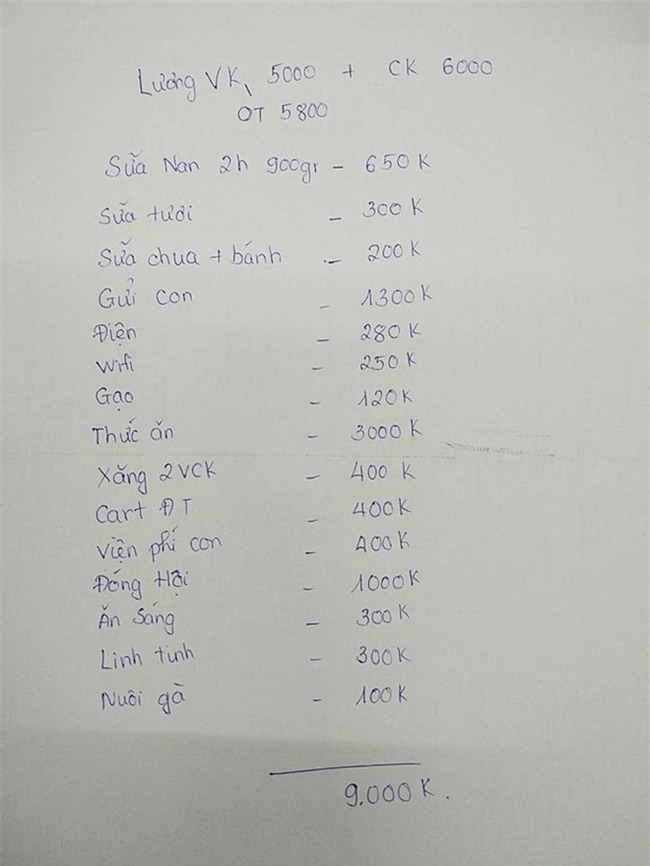 Lương VK, 5000 + CK 6000
OT 5800
Sữa Nan 2h 900gr - 650K
Sữa tươi - 300K
Sữa chua + bánh - 200K
Gửi con - 1300K
Điện - 280K
Wifi - 250K
Gạo - 120K
Thức ăn - 3000K
Xăng 2VCK - 400 K
Cart ĐT - 400K
Viện phí con - 400K
Đóng Hội - 1000K
Ăn sáng - 300K
Linh tinh - 300K
Nuôi gà - 100K
9.000K.